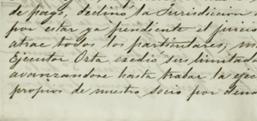 de pago, declinó la Jurisdiccion
por estar ya pendiente el juicio
atrae todos los particulares,
Ejecutor Orta exedió sus limitada
avanzandose hasta trabar la eje
propios de nuestro socio por